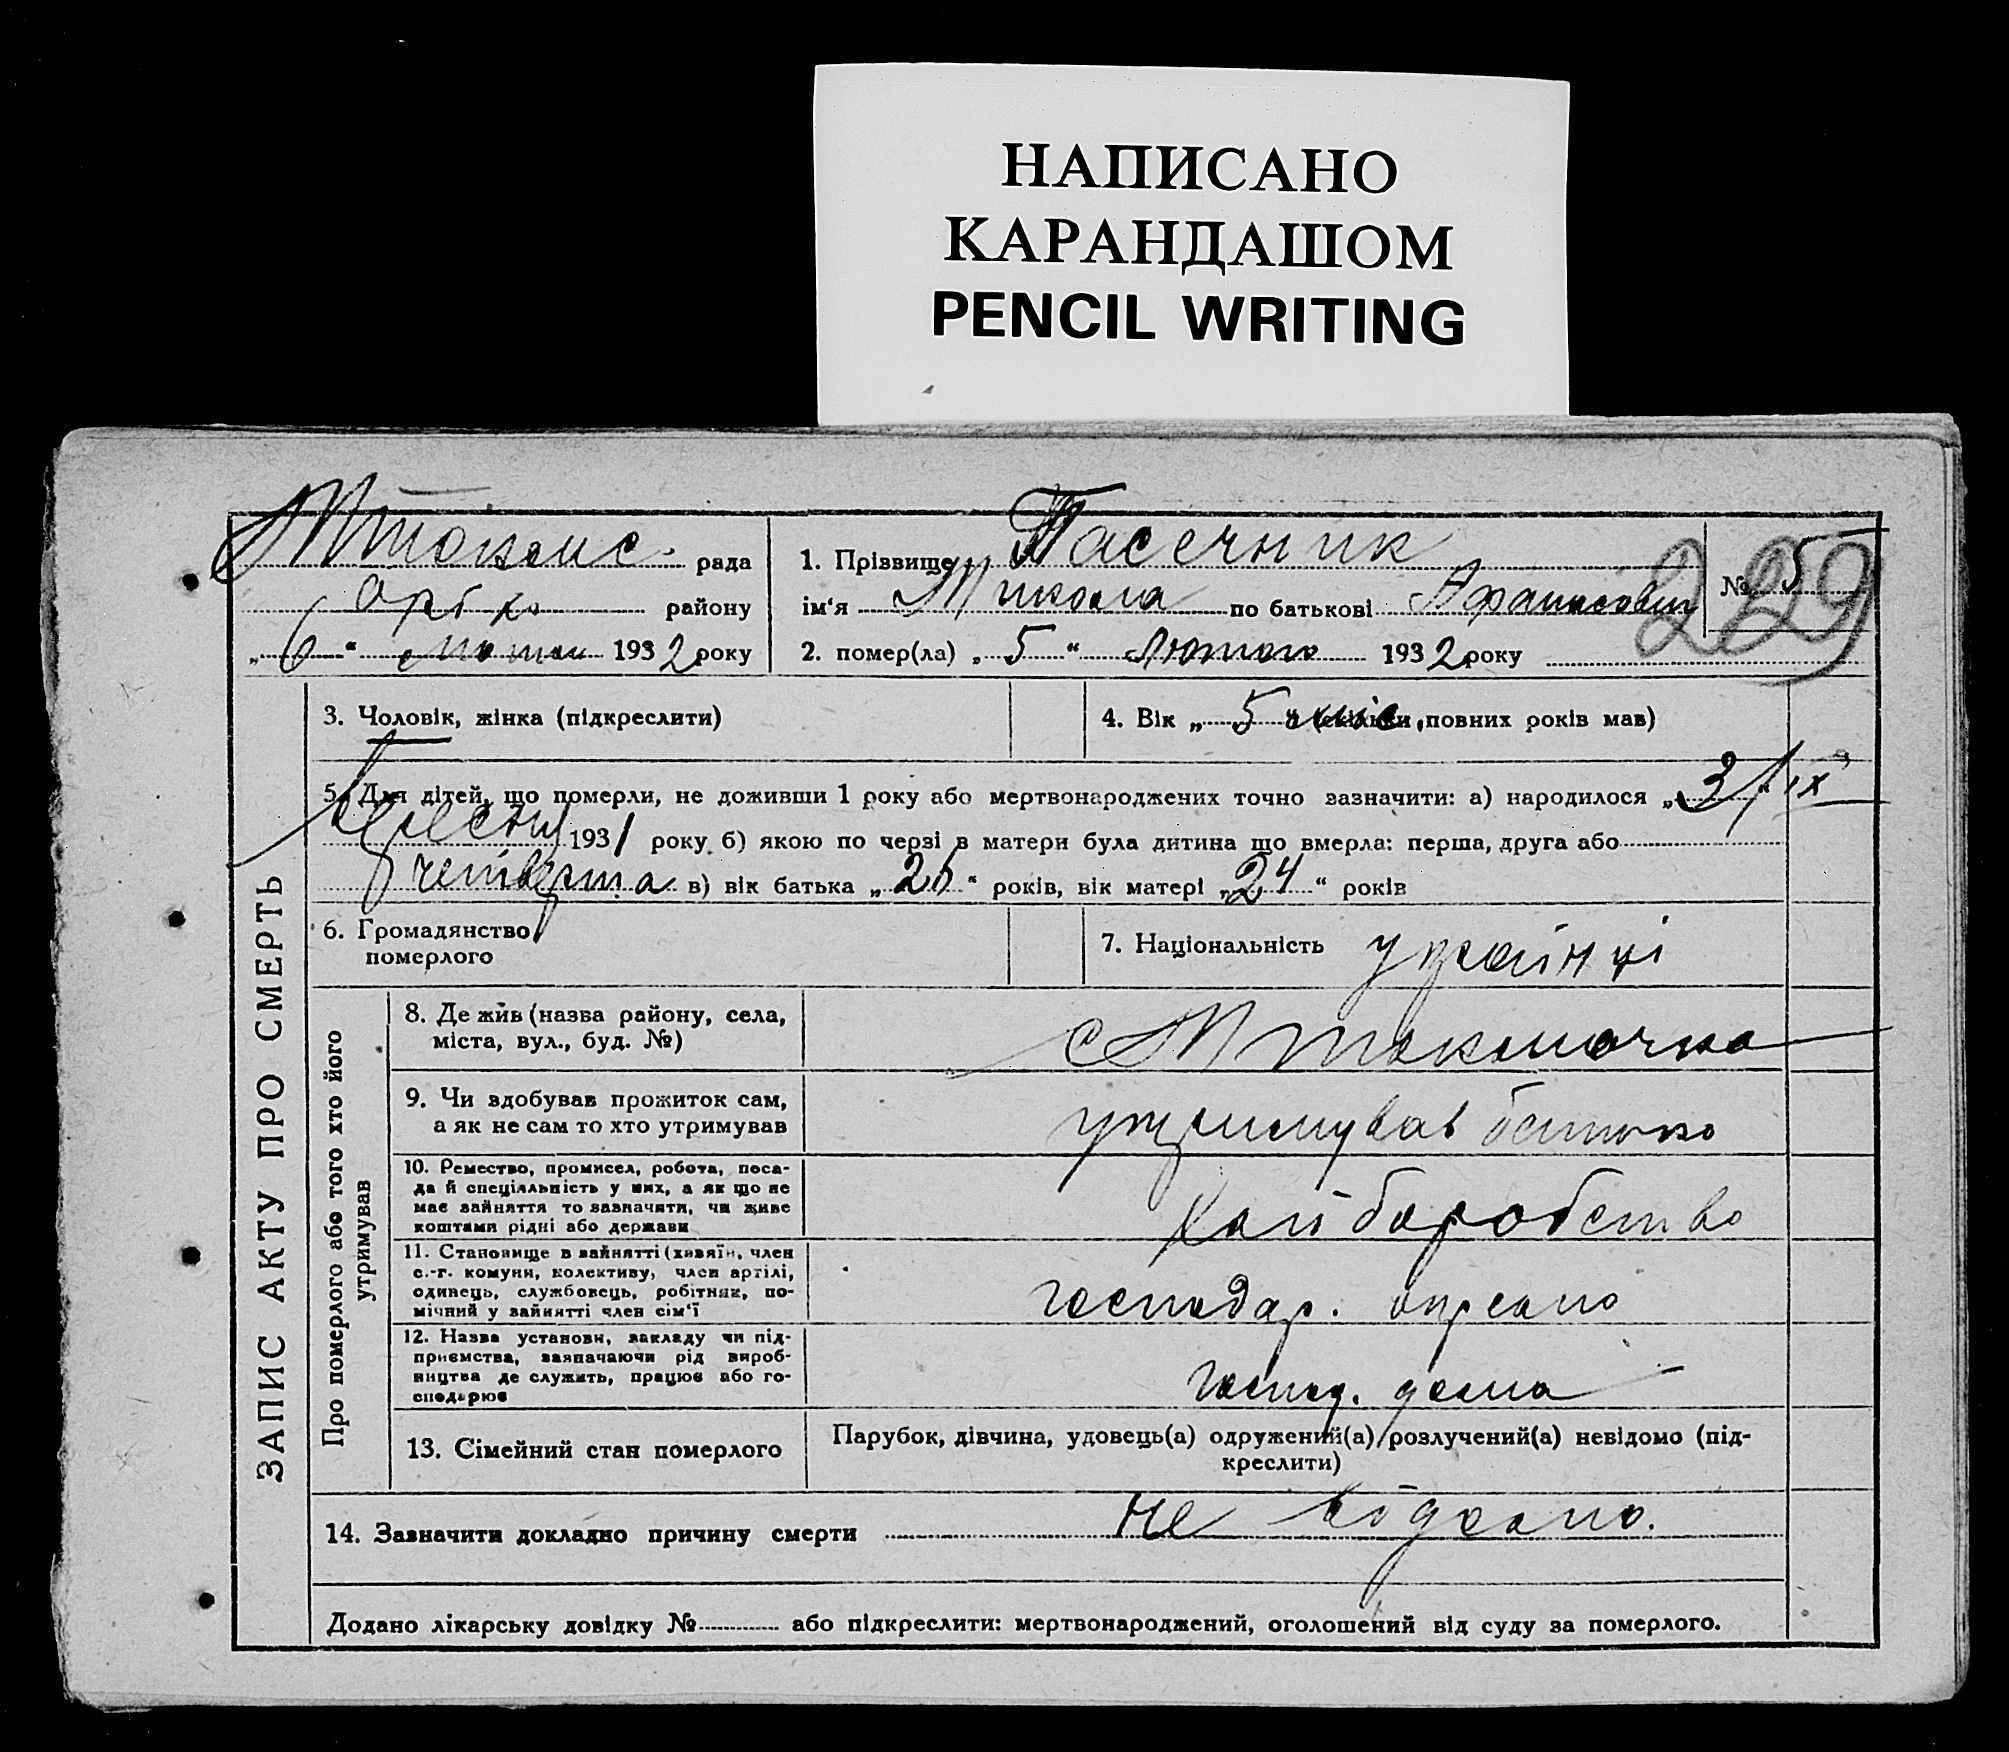 НАПИСАНО
КАРАНДАШОМ
PENCIL WRITING
рада
района
„6“ 1932 року
1. Прізвище Пасечник
ім‘я Микола по батькові Афанасович
№ 5
229
2. помер(ла) „5“ Лютого 1932 року
3. Чоловік, жінка (підкреслити)
4. Вік „5 міс. повних років мав)
5. Для дітей, що померли, не доживши 1 року або мертвонароджених точно зазначити: а) народилося „3/IX
вересня 1931 року б) якою по черзі в матери була дитина що вмерла: перша, друга або
четверта в) вік батька „26“ років, вік матері „24“ років
6. Громадянство
померлого
7. Національність українці
ЗАПИС АКТУ ПРО СМЕРТЬ
Про померлого або того хто його
утримував
8. Де жив (назва району, села,
міста, вул., буд. №)
с
9. Чи здобував прожиток сам,
а як не сам то хто утримував
утримував батько
10. Ремество, промисел, робота, поса-
да й спеціяльність у них, а як що не
має зайняття то зазначити, чи живе
коштами рідні або держави
Хліборобство
11. Становище в зайнятті (хазяїн, член
с.-г. комуни, колективу, член артілі,
одинець, службовець, робітник, по-
мічний у зайнятті член сім‘ї
господар.
12. Назва установи, закладу чи під-
приємства, зазначаючи рід вироб-
ництва де служить, працює або го-
сподарює
господ. дома
13. Сімейний стан померлого
Парубок, дівчина, удовець(а) одружений(а) розлучений(а) невідомо (під-
креслити)
14. Зазначити докладно причину смерти не відомо.
Додано лікарську довідку № або підкреслити: мертвонароджений, оголошений від суду за померлого.